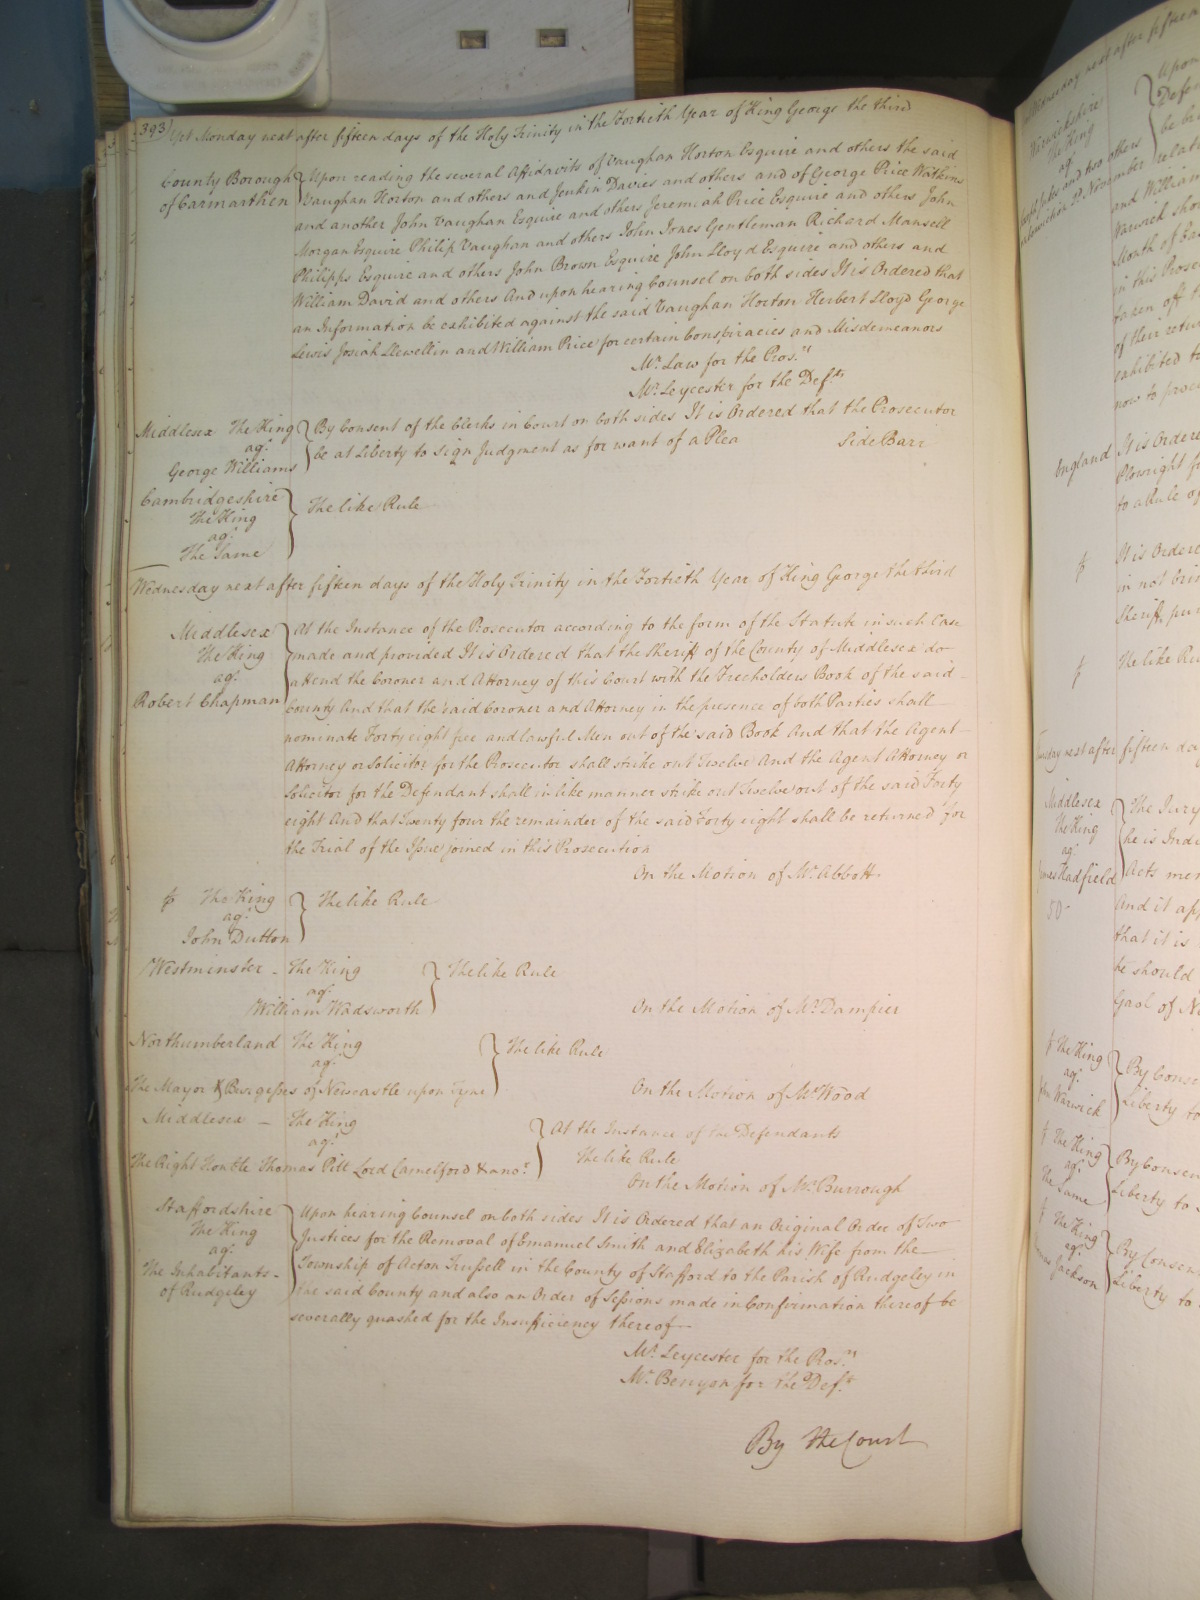 393) Yet Monday next after fifteen days of the Holy Trinity in the Fortieth Year of King George the third
County Borough of Carmarthen } Upon reading the several Affidavits of Vaughan Horton Esquire and others the said
Vaughan Horton and others and Jenkin Davies and others and of George Price Watkins
and another John Vaughan Esquire and others Jeremiah Price Esquire and others John
Morgan Esquire Philip Vaughan and others John Jones Gentleman Richard Mansell
Philipps Esquire and others John Brown Esquire John Lloyd Esquire and others and
William David and others And upon hearing Counsel on both sides It is Ordered that
an Information be exhibited against the said Vaughan Horton Herbert Lloyd George
Lewis Josiah Llewellin and William Price for certain Conspiracies and Misdemeanors
Mr. Law for the Pros.rs
Mr. Leycester for the Def.ts
Middlesex The King
agt.
George Williams
} By Consent of the Clerks in Court on both sides It is Ordered that the Prosecutor
be at Liberty to sign Judgment as for want of a Plea Side Barr
Cambridgeshire
The King
agt.
The Same
} The like Rule
Wednesday next after fifteen days of the Holy Trinity in the Fortieth Year of King George the third
Middlesex
The King
agt.
Robert Chapman
} At the Instance of the Prosecutor according to the form of the Statute in such Case
made and provided It is Ordered that the Sheriff of the County of Middlesex do
attend the Coroner and Attorney of this Court with the Freeholders Book of the said
County And that the said Coroner and Attorney in the presence of both Parties shall
nominate Forty eight free and lawful Men out of the said Book And that the Agent
Attorney or Solicitor for the Prosecutor shall strike out Twelve And the Agent Attorney or
Solicitor for the Defendant shall in like manner strike out Twelve out of the said Forty
eight And that Twenty four the remainder of the said Forty eight shall be returned for
the Trial of the Issue joined in this Prosecution
On the Motion of Mr. Abbott
The King
agt.
John Dutton
} The like Rule
Westminster - The King
agt.
William Wadsworth
} The like Rule
On the Motion of Mr. Dampier
Northumberland The King
agt.
The Mayor & Burgesses of Newcastle upon Tyne
} The like Rule
On the Motion of Mr. Wood
Middlesex - The King
agt.
The Right Honble Thomas Pitt Lord Camelford & anor.
} At the Instance of the Defendants
The like Rule
On the Motion of Mr. Burrough
Staffordshire
The King
agt.
The Inhabitants
of Rudgeley
} Upon hearing Counsel on both sides It is Ordered that an Original Order of Two
Justices for the Removal of Emanuel Smith and Elizabeth his Wife from the
Township of Acton Trussell in the County of Stafford to the Parish of Rudgeley in
the said County and also an Order of Sessions made in Confirmation thereof be
severally quashed for the Insufficiency thereof
Mr. Leycester for the Pros.rs
Mr. Benyon for the Def.t
By the Court
Warwickshire
The King
agt.
and two others
Upon
be
and William
Warwick
Month of
in this Prose
taken off
of their retu
exhibited
now to proce
England It is Ordere
Plowright
to a Rule of
It is Ordere
in not brin
Sheriff
The like Ru
next after fifteen da
Middlesex
The King
agt.
James Hadfield
50
The Jury
he is Indi
Acts men
And it app
that it is
he should
Gaol of Ne
The King
agt.
John Warwick
} By Conse
Liberty to
The King
agt.
The Same
} By Consen
Liberty to
The King
agt.
Jackson
} By Consen
Liberty to